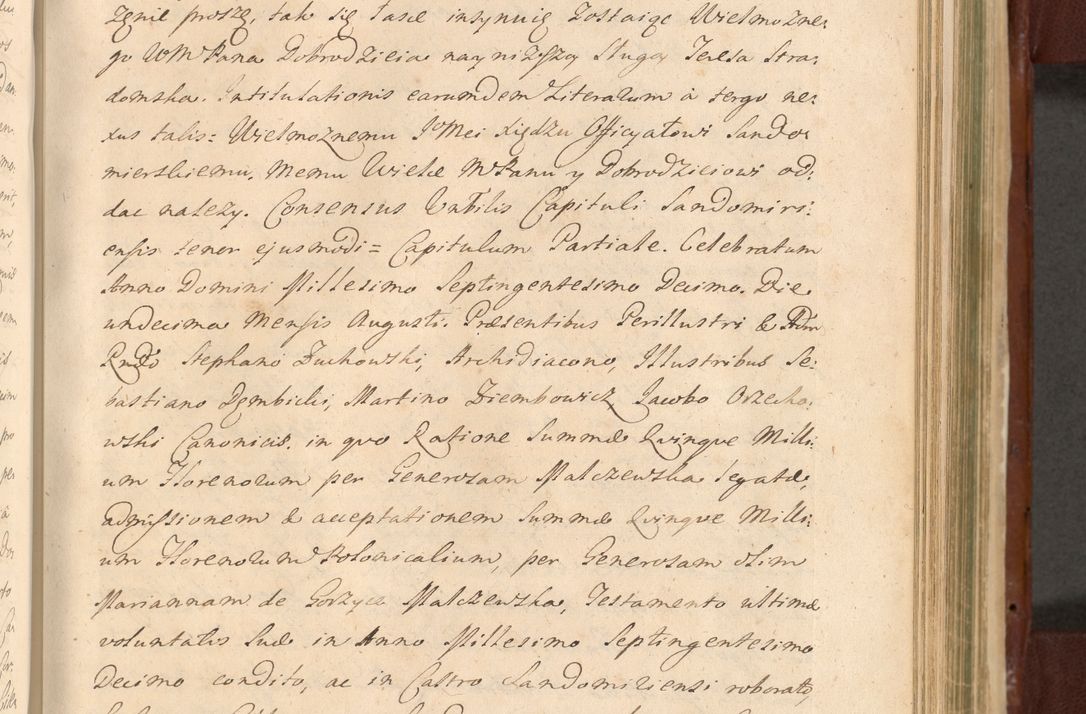 żenie proszę, tak się łasce insynuię zostaiąc Wielmożne:
go WMPana Dobrodzieia nayniższą sługą Teresa Stra:
domska. Intitulationis earumdem Literarum à tergo ne:
xus talis: Wielmożnemu JoMci Xiędzu Officyałowi Sando:
mierskiemu, Memu Wielce MPanu y Dobrodzieiowi od:
dac należy. Consensus Vnbilis Capituli Sandomiri:
ensis tenor ejusmodi = Capitulum Partiale. Celebratum
Anno Domini Millesimo Septingentesimo Decimo. Die
undecima Mensis Augusti. Præsentibus Perillustri & Adm
Rndo Stephano Zuchowski, Archidiacono, Illustribus Se:
bastiano Dembicki, Martino Ziembowicz, Jacobo Orzecho:
wski Canonicis. in quo Ratione Summæ Quinque Milli:
um Florenorum per Generosam Malczewska legatæ,
admissionem & acceptationem Summæ Quinque Milli:
um Florenorum Polonicalium, per Generosam olim
Mariannam de Gorzyce Malczewska, Testamento ultimæ
voluntatis Suæ in Anno Millesimo Septingentesimo
Decimo condito, ac in Castro Sandomiriensi roborato,